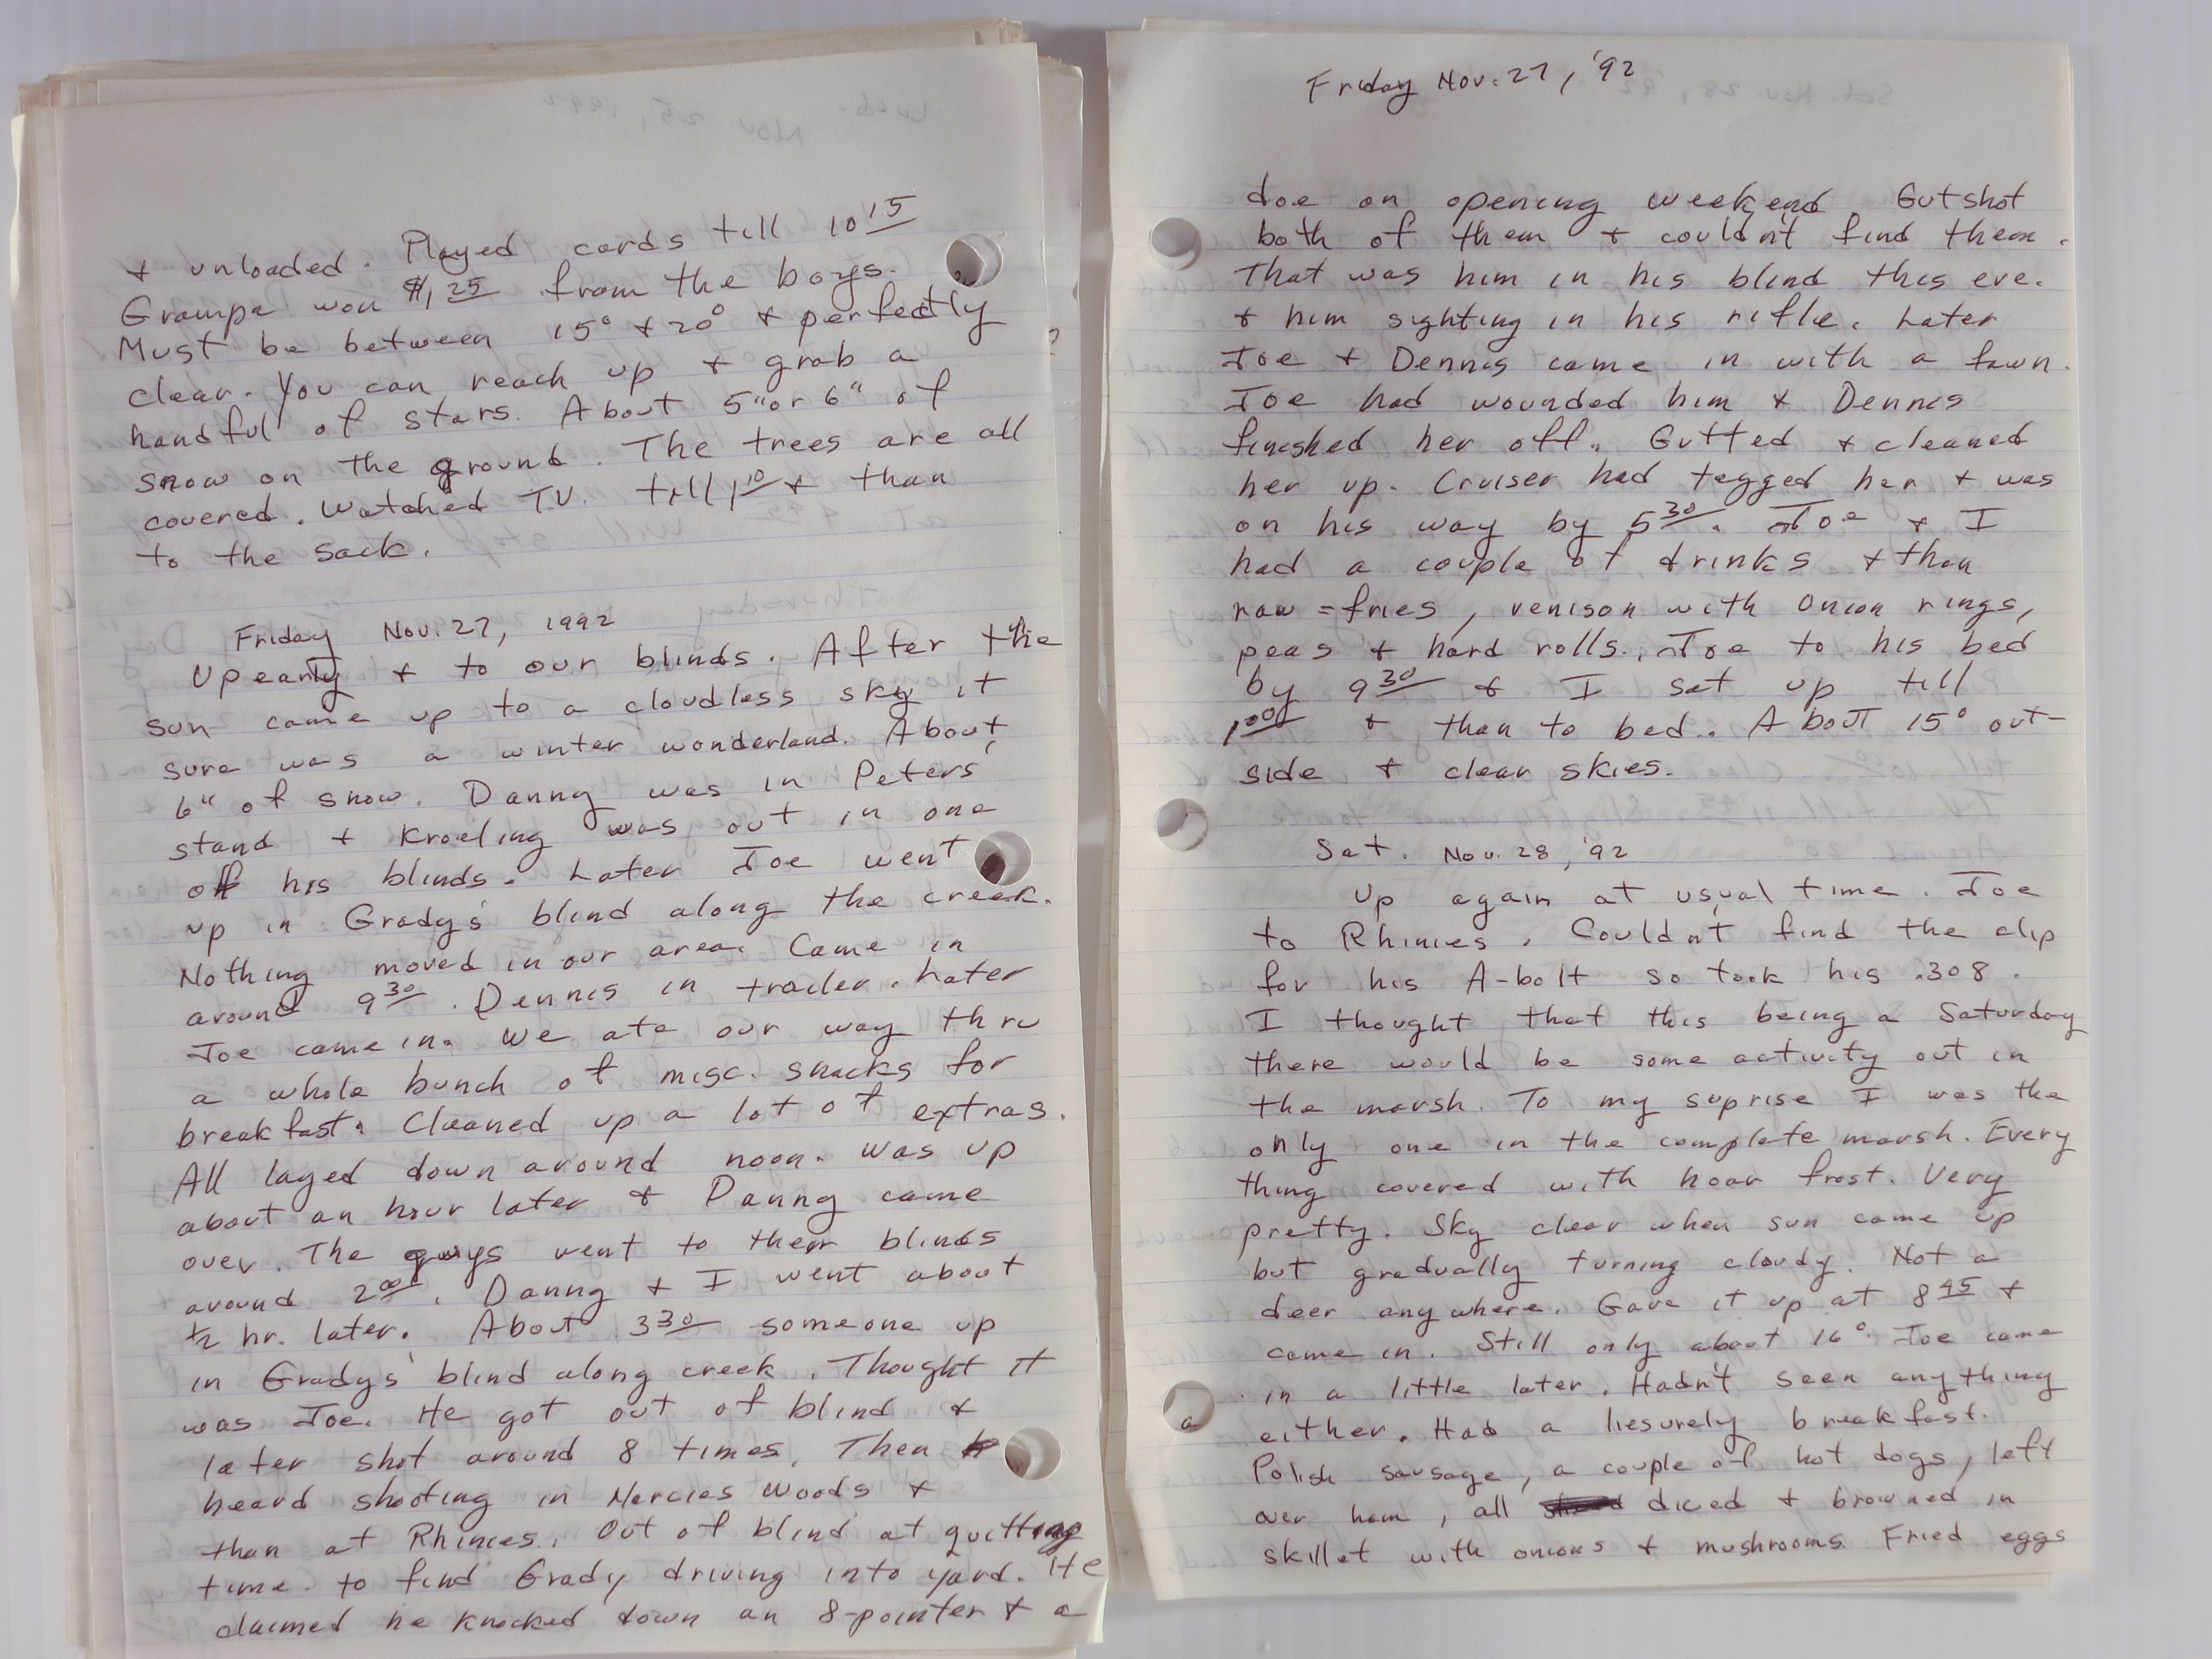 & unloaded. Played cards till 10 15
Grampa won $1,25 from the boys.
Must be between 15° & 20° & perfectly
clear. You can reach up & grab a
handful of stars. About 5" or 6" of
snow on the ground. The trees are all
covered. Watched T.V. till 1 10 & than
to the sack.
Friday Nov. 27, 1992
Up early & to our blinds. After the
sun came up to a cloudless sky it
sure was a winter wonderland. About
6" of snow. Danny was in Peters'
stand & Kroeling was out in one
of his blinds. Later Joe went
up in Grady's blind along the creek.
Nothing moved in our area. Came in
around 9 30. Dennis in trailer. Later
Joe came in. We ate our way thru
a whole bunch of misc. snacks for
breakfast. Cleaned up a lot of extras.
All layed down around noon. Was up
about an hour later & Danny came
over. The guys went to their blinds
around 2 00. Danny & I went about
1/2 hr. later. About 3 30 someone up
in Grady's blind along creek. Thought it
was Joe. He got out of blind &
later shot around 8 times. Then
heard shooting in Mercies woods &
than at Rhinies. Out of blind at quitting
time to find Grady driving into yard. He
claimed he knocked down an 8-pointer & a
Friday Nov. 27, '92
doe on opening weekend Gutshot
both of them & couldn't find them.
That was him in his blind this eve.
& him sighting in his rifle. Later
Joe & Dennis came in with a fawn.
Joe had wounded him & Dennis
finished her off. Gutted & cleaned
her up. Cruiser had tagged her & was
on his way by 5 30. Joe & I
had a couple of drinks & than
raw-fries, venison with onion rings,
peas & hard rolls. Joe to his bed
by 9 30 & I sat up till
1 00 & than to bed. About 15° out-
side & clear skies.
Sat. Nov. 28, '92
Up again at usual time. Joe
to Rhinies. Couldn't find the clip
for his A-bolt so took his .308.
I thought that this being a Saturday
there would be some activity out in
the marsh. To my suprise I was the
only one in the complete marsh. Every
thing covered with hoar frost. Very
pretty. Sky clear when sun came up
but gradually turning cloudy. Not a
deer anywhere. Gave it up at 8 45 &
came in. Still only about 16°. Joe came
in a little later. Hadn't seen anything
either. Had a liesurely breakfast.
Polish sausage, a couple of hot dogs, left
over ham, all diced & browned in
skillet with onions & mushrooms. Fried eggs